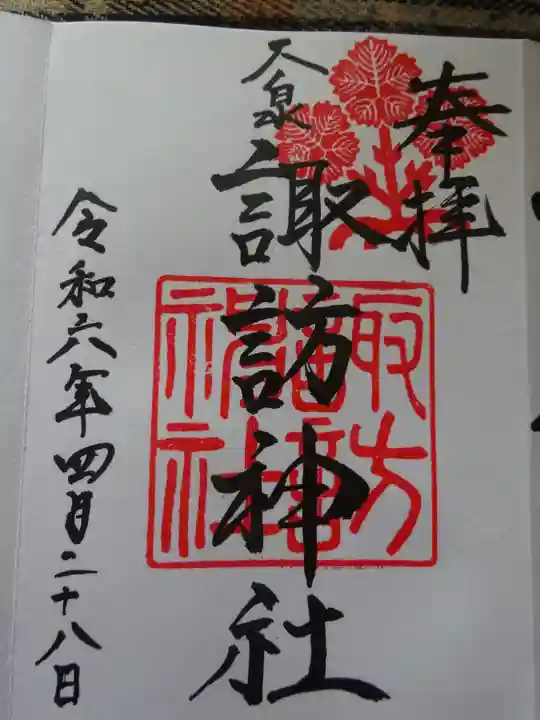 奉拝
大泉
諏訪神社
令和六年四月二十八日
諏訪
神社